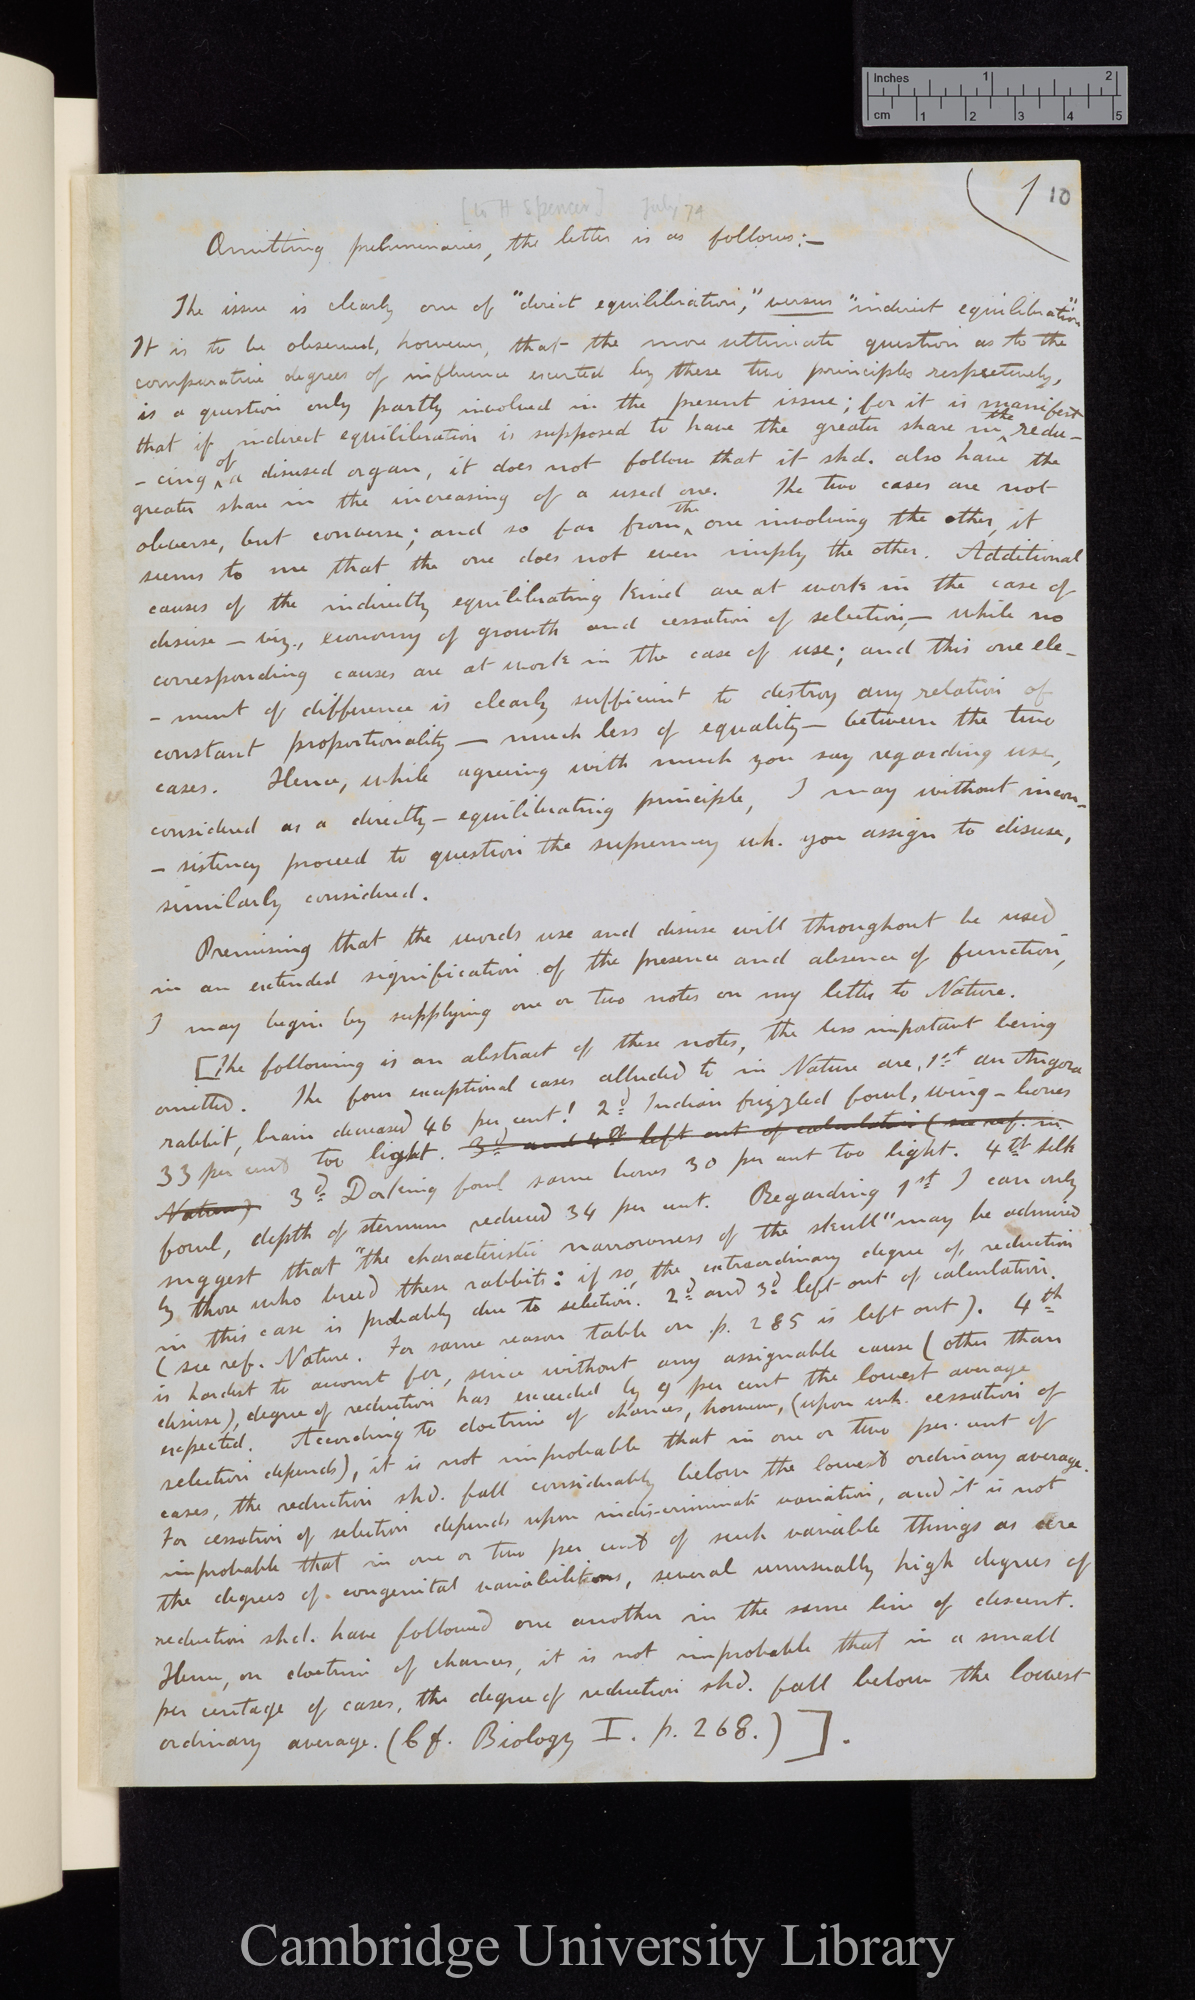 Inches 1 2
cm 1 2 3 4 5
1 10
[to H Spencer] July 74
Omitting preliminaries, the letter is as follows:—
The issue is clearly one of "direct equilibration," versus "indirect equilibration"
It is to be observed, however, that the more ultimate question as to the
comparative degrees of influence exerted by these two principles respectively,
is a question only partly involved in the present issue; for it is manifest
that if indirect equilibration is supposed to have the greater share in the redu-
-cing of a disused organ, it does not follow that it shd. also have the
greater share in the increasing of a used one. The two cases are not
obverse, but converse; and so far from the one involving the other, it
seems to me that the one does not even imply the other. Additional
causes of the indirectly equilibrating kind are at work in the case of
disuse — viz., economy of growth and cessation of selection,— while no
corresponding causes are at work in the case of use; and this one ele-
-ment of difference is clearly sufficient to destroy any relation of
constant proportionality — much less of equality — between the two
cases. Hence, while agreeing with much you say regarding use,
considered as a directly-equilibrating principle, I may without incon-
-sistency proceed to question the supremacy wh. you assign to disuse,
similarly considered.
Premising that the words use and disuse will throughout be used
in an extended signification of the presence and absence of function,
I may begin by supplying one or two notes on my letter to Nature.
[The following is an abstract of these notes, the less important being
omitted. The four exceptional cases alluded to in Nature are, 1st an Angora
rabbit, brain decreased 46 per cent! 2d Indian frizzled fowl, wing-bones
33 per cent too light. 3d and 4th left out of calculation (see ref. in
Nature) 3d Dorking fowl same bones 30 per cent too light. 4th silk
fowl, depth of sternum reduced 34 per cent. Regarding 1st I can only
suggest that "the characteristic narrowness of the skull" may be admired
by those who breed these rabbits: if so, the extraordinary degree of reduction
in this case is probably due to selection. 2d and 3d left out of calculation.
(see ref. Nature. For same reason table on p. 285 is left out). 4th
is hardest to account for, since without any assignable cause (other than
disuse), degree of reduction has exceeded by 9 per cent the lowest average
expected. According to doctrine of chances, however, (upon wh. cessation of
selection depends), it is not improbable that in one or two per cent of
cases, the reduction shd. fall considerably below the lowest ordinary average.
For cessation of selection depends upon indiscriminate variation, and it is not
improbable that in one or two per cent of such variable things as are
the degrees of congenital variabilities, several unusually high degrees of
reduction shd. have followed one another in the same line of descent.
Hence, on doctrine of chances, it is not improbable that in a small
per centage of cases, the degree of reduction shd. fall below the lowest
ordinary average. (Cf. Biology I. p. 268.)].
Cambridge University Library